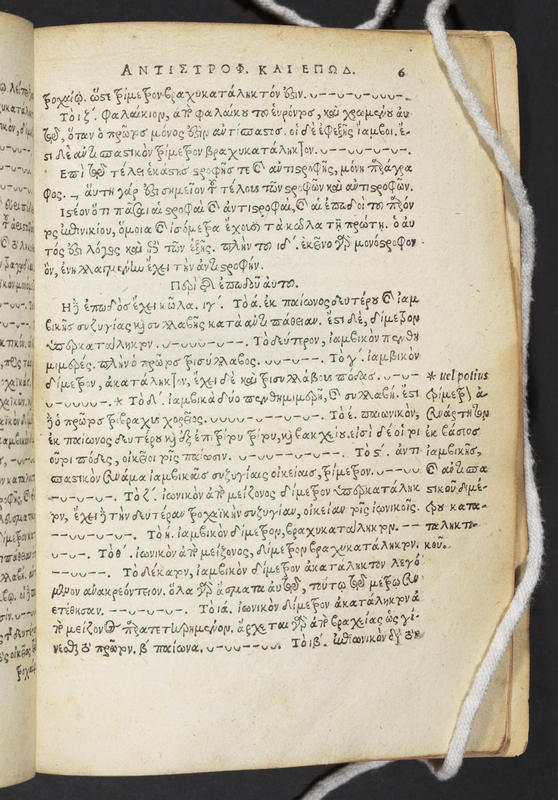 ΑΝΤΙΣΤΡΟΦ. ΚΑΙ ΕΠΩΔ. 6
τροχαίῳ. ὥστε τρίμετρον βραχυκατάληκτόν ἐστιν. ‿--‿-‿-‿‿‿--.
Τὸ ιζ΄. φαλαίκιον, ἀπὸ φαλαίκου τοῦ εὑρόντος, καὶ χρωμένου αὐ
τῷ, ὅταν ὁ πρῶτος μόνος ἐστὶν ἀντίσπαστος. οἱ δὲ ἐφεξῆς ἴαμβοι. ἔ-
στι δὲ ἀντισπαστικὸν τρίμετρον βραχυκατάληκτον.
Ἐπὶ τῷ τέλει ἑκάστης στροφῆς τε καὶ ἀντιστροφῆς, μόνη παράγρα
φος. αὕτη γάρ ἐστι σημεῖον τοῦ τέλους τῶν στροφῶν καὶ ἀντιστροφῶν.
Ἰστέον ὅτι πᾶσαι αἱ στροφαὶ καὶ ἀντιστροφαὶ, καὶ αἱ ἐπῳδοὶ τοῦ πρώτου
ἐπινικίου, ὅμοια καὶ ἰσόμετρα ἔχουσι τὰ κῶλα τῇ πρώτῃ. ὁ αὐ
τός ἐστι λόγος καὶ ἐπὶ τῶν ἑξῆς. πλὴν τοῦ ιδ΄. ἐκεῖνο γὰρ μονόστροφον
ὂν, ἐνηλλαγμένην ἔχει τὴν ἀντιστροφήν.
Περὶ τῆς ἐπωδοῦ αὐτοῦ.
Ἡ δὲ ἐπωδὸς ἔχει κῶλα. ιγ΄. Τὸ ά. ἐκ παίωνος δευτέρου καὶ ἰαμ
βικῆς συζυγίας καὶ συλλαβῆς κατὰ ἀντιπάθειαν. ἔστι δὲ, δίμετρον
ὑπερκατάληκτον. Τὸ δεύτερον, ἰαμβικὸν πενθη
μιμερές. πλὴν ὁ πρῶτος τρισύλλαβος. Τὸ γ΄. ἰαμβικὸν
δίμετρον, ἀκατάληκτον, ἔχει δὲ καὶ τρισυλλάβους πόδας.
* Τὸ δ΄. ἰαμβικὰ δύο πενθημιμερῆ, καὶ συλλαβή. ἔστι
δὲ ὁ πρῶτος τρίβραχυς χορεῖος. Τὸ έ. παιωνικὸν,
ἐκ παίωνος δευτέρου καὶ ἐπιτρίτου τρίτου, καὶ βακχείου. εἰσὶ δὲ οἱ τρι
ούτοι πόδες, οἰκεῖοι τοῖς παίωσιν. Τὸ ϛ΄. ἀντι
σπαστικὸν ἅμα ἰαμβικαῖς συζυγίαις οἰκείαις, τρίμετρον.
Τὸ ζ΄. ἰωνικὸν ἀπὸ μείζονος δίμετρον ὑπερκατάληκ
τον, ἔχει δὲ τὴν δευτέραν τροχαϊκὴν συζυγίαν, οἰκείαν τοῖς ἰωνικοῖς.
Τὸ ή. ἰαμβικὸν δίμετρον, βραχυκατάληκτον.
Τὸ θ΄. ἰωνικὸν ἀπὸ μείζονος, δίμετρον βραχυκατάληκτον.
Τὸ δέκατον, ἰαμβικὸν δίμετρον ἀκατάληκτον λεγό
μενον ἀνακρεόντειον. ὅλα γὰρ ᾄσματα αὐτῷ, τούτῳ τῷ μέτρῳ συν
ετέθησαν. Τὸ ιά. ἰωνικὸν δίμετρον ἀκατάληκτον ἀ
πὸ μείζονος παρατετηρημένον. ἄρχεται γὰρ ἀπὸ βραχείας ὡς γί-
νεσθαι τὸ πρῶτον. β΄ παίωνα. Τὸ ιβ΄. ἐπιωνικὸν
* vel potius
τρίμετρ
ἐκ βάσεως
ἰαμβικῆς,
καὶ ἀντισπα
στικοῦ διμέ-
τρου κατα-
ληκτι-
κοῦ.